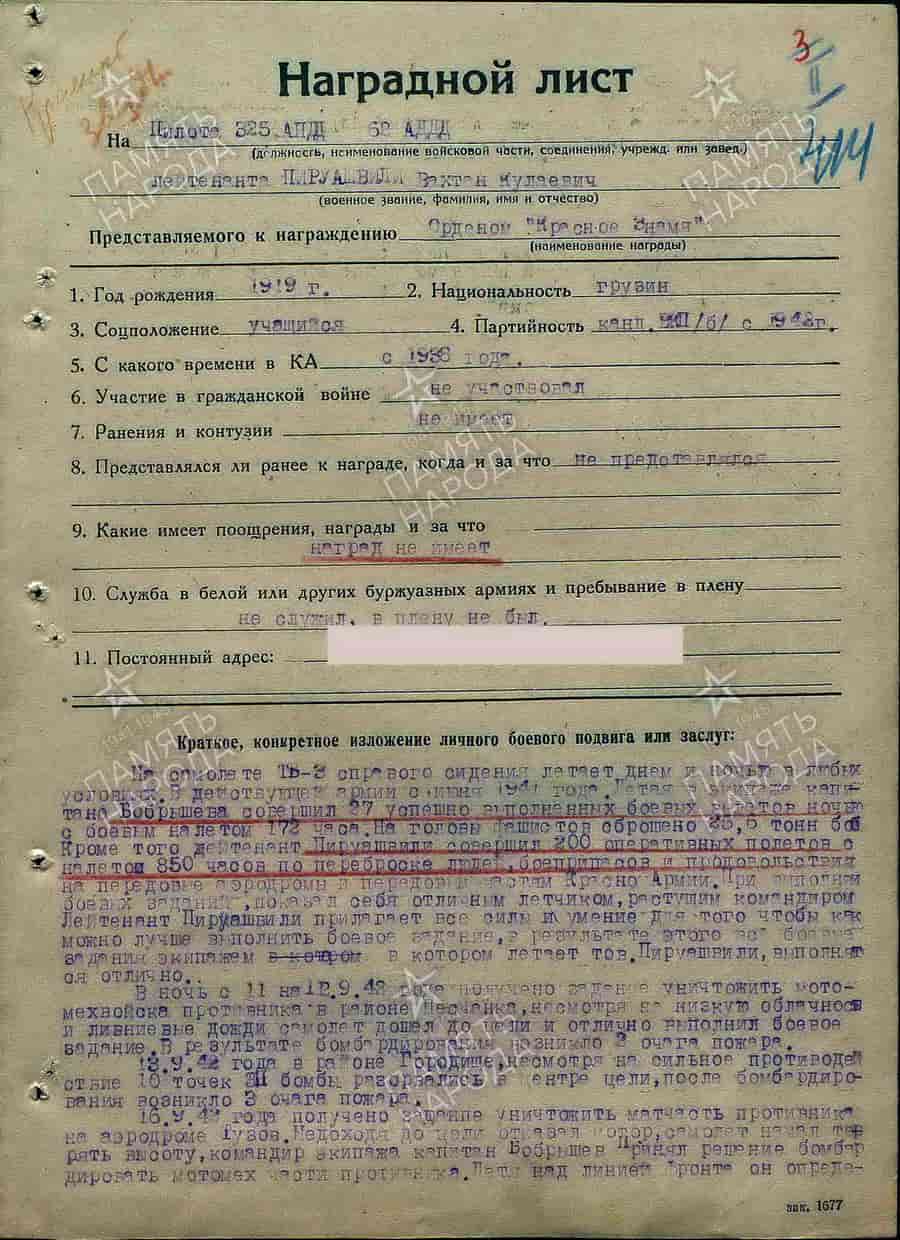 3
II
Наградной лист
На Пилота 325 АПДД 62 АДДД
(должность, наименование войсковой части, соединения, учрежд. или завед.)
лейтенанта ПИРУАШВИЛИ Вахтан Кулаевич
(военное звание, фамилия, имя и отчество)
Представляемого к награждению Орденом "Красное Знамя"
(наименование награды)
1. Год рождения 1919 г. 2. Национальность грузин
3. Соцположение учащийся 4. Партийность канд. /б/ с 1942г.
5. С какого времени в КА с 1938 года.
6. Участие в гражданской войне не участвовал
7. Ранения и контузии не имеет
8. Представлялся ли ранее к награде, когда и за что не представлялся
9. Какие имеет поощрения, награды и за что
наград не имеет
10. Служба в белой или других буржуазных армиях и пребывание в плену
не служил, в плену не был.
11. Постоянный адрес:
Краткое, конкретное изложение личного боевого подвига или заслуг:
На самолете ТБ-3 справого сидения летает днем и ночью в любых
условиях. В действующей армии с июня 1941 года. Летая в экипаже капи-
тана Бобрышева совершил 37 успешно выполненных боевых вылетов ночью
с боевым налетом 172 часа. На головы фашистов сброшено тонн бомб
Кроме того лейтенант Пируашвили совершил 200 оперативных полетов с
налетом 850 часов по переброске людей, боеприпасов и продовольствия
на передовые аэродромы и передовым частям Красно Армии. При выполнен
боевых заданий, показал себя отличным летчиком, растущим командиром
Лейтенант Пируашвили прилагает все силы и умение для того чтобы как
можно лучше выполнить боевое задание, в результате этого все боевые
задания экипажем в котором в котором летает тов. Пируашвили, выполнят
ся отлично..
В ночь с 11 на 12.9.42 года получено задание уничтожить мото-
мехвойска противника в районе Песчанка, несмотря на низкую облачнос
и ливниевые дожди самолет дошел до цели и отлично выполнил боевое
задание. В результате бомбардирования возникло 3 очага пожара.
13.9.42 года в районе Городище, несмотря на сильное противодей
ствие 10 точек ЗП бомбы разорвались в центре цели, после бомбардиро-
вания возникло 3 очага пожара.
16.9.42 года получено задание уничтожить матчасть противника
на аэродроме Гузов. Недоходя до цели отказал мотор, самолет начал те
рять высоту, командир экипажа капитан Бобрышев принял решение бомбар
дировать мотомех части противника. Летя над линией фронта он опреде-
зак. 1677
ПАМЯТЬ НАРОДА